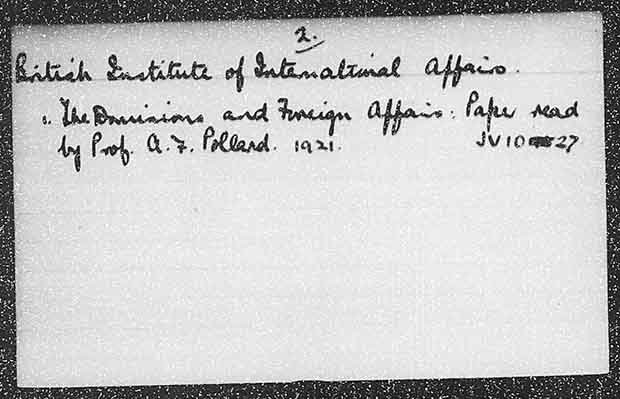 2.
British Institute of International Affairs.
The Dominions and Foreign Affairs: Paper read
by Prof. A. F. Pollard. 1921. JV10 27